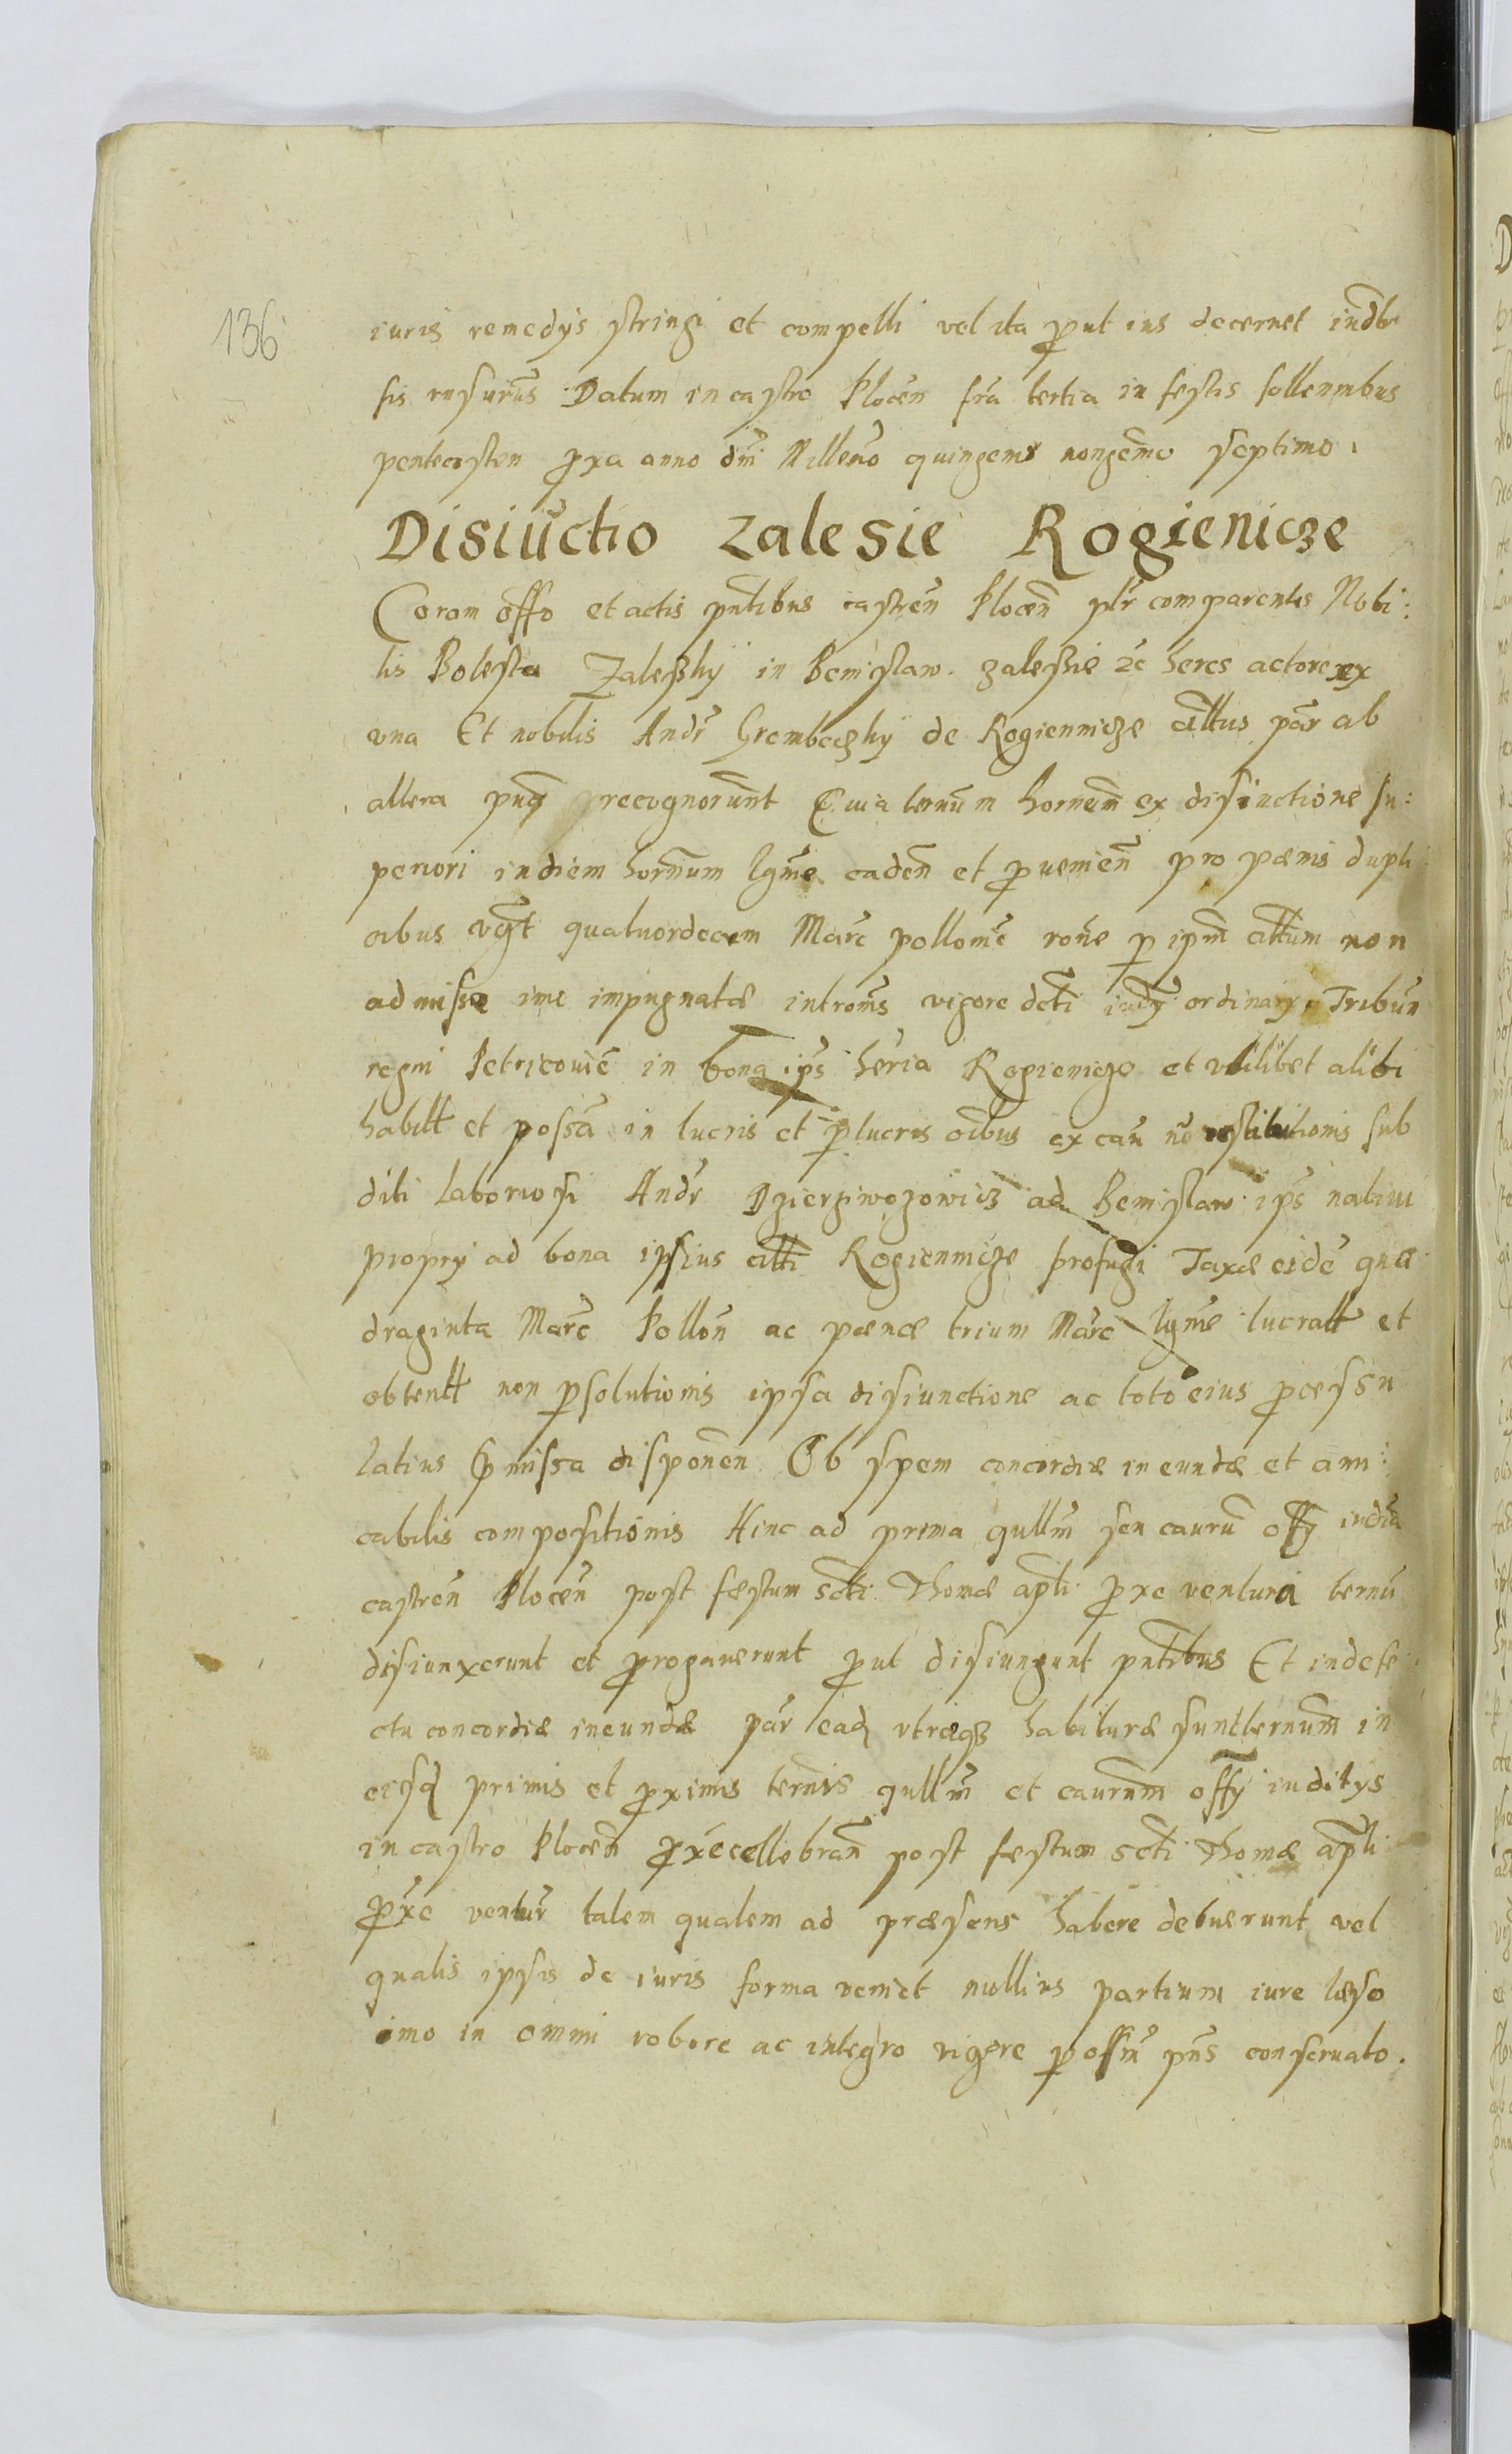 136
iuris remedys stringi et compelli vel ita put ius decernet indbi
sis visurus. Datum in castro Plocen fria tertia in festis sollennibus
pentecosten pxa anno dni Milleno quingento nongemo septimo.
Disiuctio Zalesie Rogienicze
Coram offo et actis pntibus castren Plocen plr comparentes Nobi:
lis Bolesta Zaleskÿ in Bemislaw. zaleskie zc heres actor ex
vna Et nobilis Andr Grembeczkÿ de Rogiennicze citus par ab
altera recognorunt Quia ternum hornum ex disiuctione su:
periori indiem hornum lgme caden et puenien pro paenis dupli
cibus vgt quatuordecem Marc pollonic rone p ipm cittum non
admissae imc impugnatae intromis vigore dcti iudy ordinary Tribun
regni Petricouie in bona ips heria Rogienicze et vbilibet alibi
habilt et possa in lucris et plucris oibus ex cau no restitutionis sub
diti laboriosi Andr Dzierziwozowicz ad Bemislaw ips natiui
propry ad bona ipsius citti Rogiennicze profugi Taxae eide qua
draginta Marc Pollon ac paenae trium Marc lgme lucratt et
obtentt non psolutionis ipsa disiunctione ac toto eius pcessu
latius pmissa disponen Ob spem concordiae ineundae et ami:
cabilis compositionis Hinc ad prima qullm seu cauru offy indica
castren Plocen post faestum scti Thomae apli pxe ventura ternu
disiunxerunt et progauerunt put disiungunt pntibus Et indefe
ctu concordiae ineundae par eaq vtraeqz habiturae sunt ternum in
eisq primis et proximis ternis qullm et caurum offy inditys
in castro Plocen pxe cellebran post faestum scti Thomae apli
pxe ventur talem qualem ad praesens habere debuerunt vel
qualis ipsis de iuris forma veniet nullius partium iure laeso
imo in omni robore ac integro vigore p offm pns conseruato.